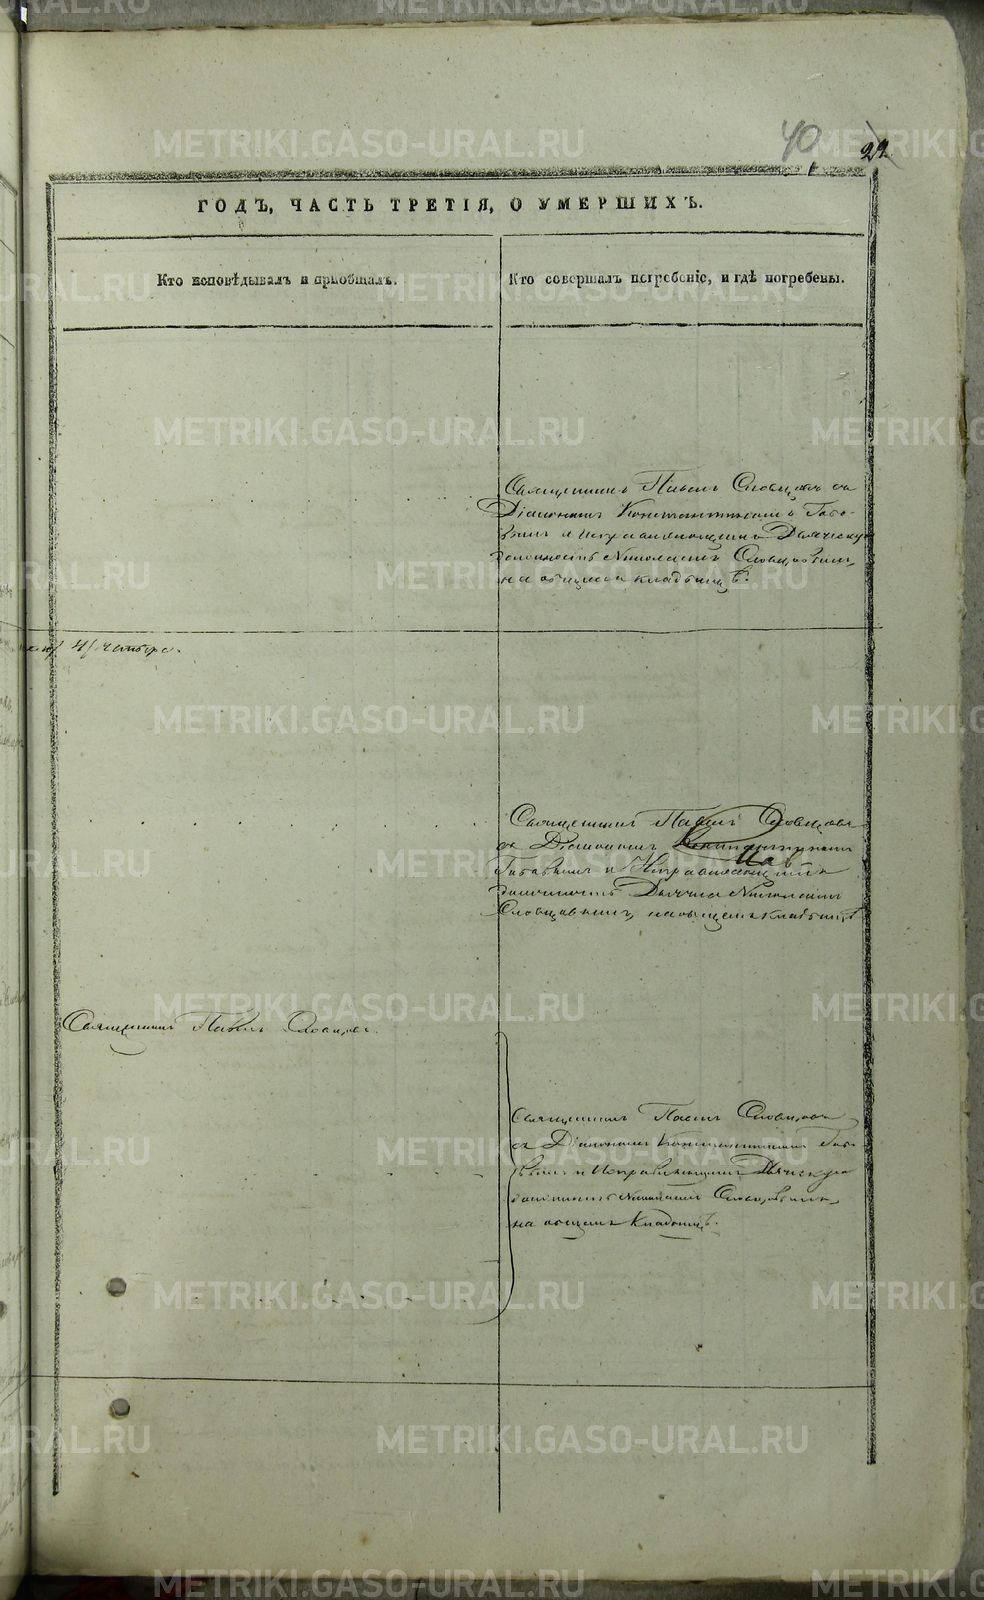 METRIKI.GASO-URAL.RU
40
22
ГОДЪ, ЧАСТЬ ТРЕТІЯ, О УМЕРШИХЪ.
Кто исповѣдывалъ и пріобщалъ.
Кто совершалъ погребеніе, и гдѣ погребены.
Священникъ Павелъ Словцовъ съ
Діакономъ Константиномъ
Дьяческую
должность Николаемъ Словцовымъ,
на общемъ кладбищѣ.
Священникъ Павелъ Словцовъ
съ Діакономъ
и
должность Дьячка Николаемъ
Словцовымъ, на общемъ кладбищѣ
Священникъ Павелъ Словцовъ.
Священникъ Павелъ Словцовъ
съ Діакономъ Константиномъ
и Исправляющимъ Дьяческую
должность Николаемъ Словцовымъ,
на общемъ кладбищѣ.